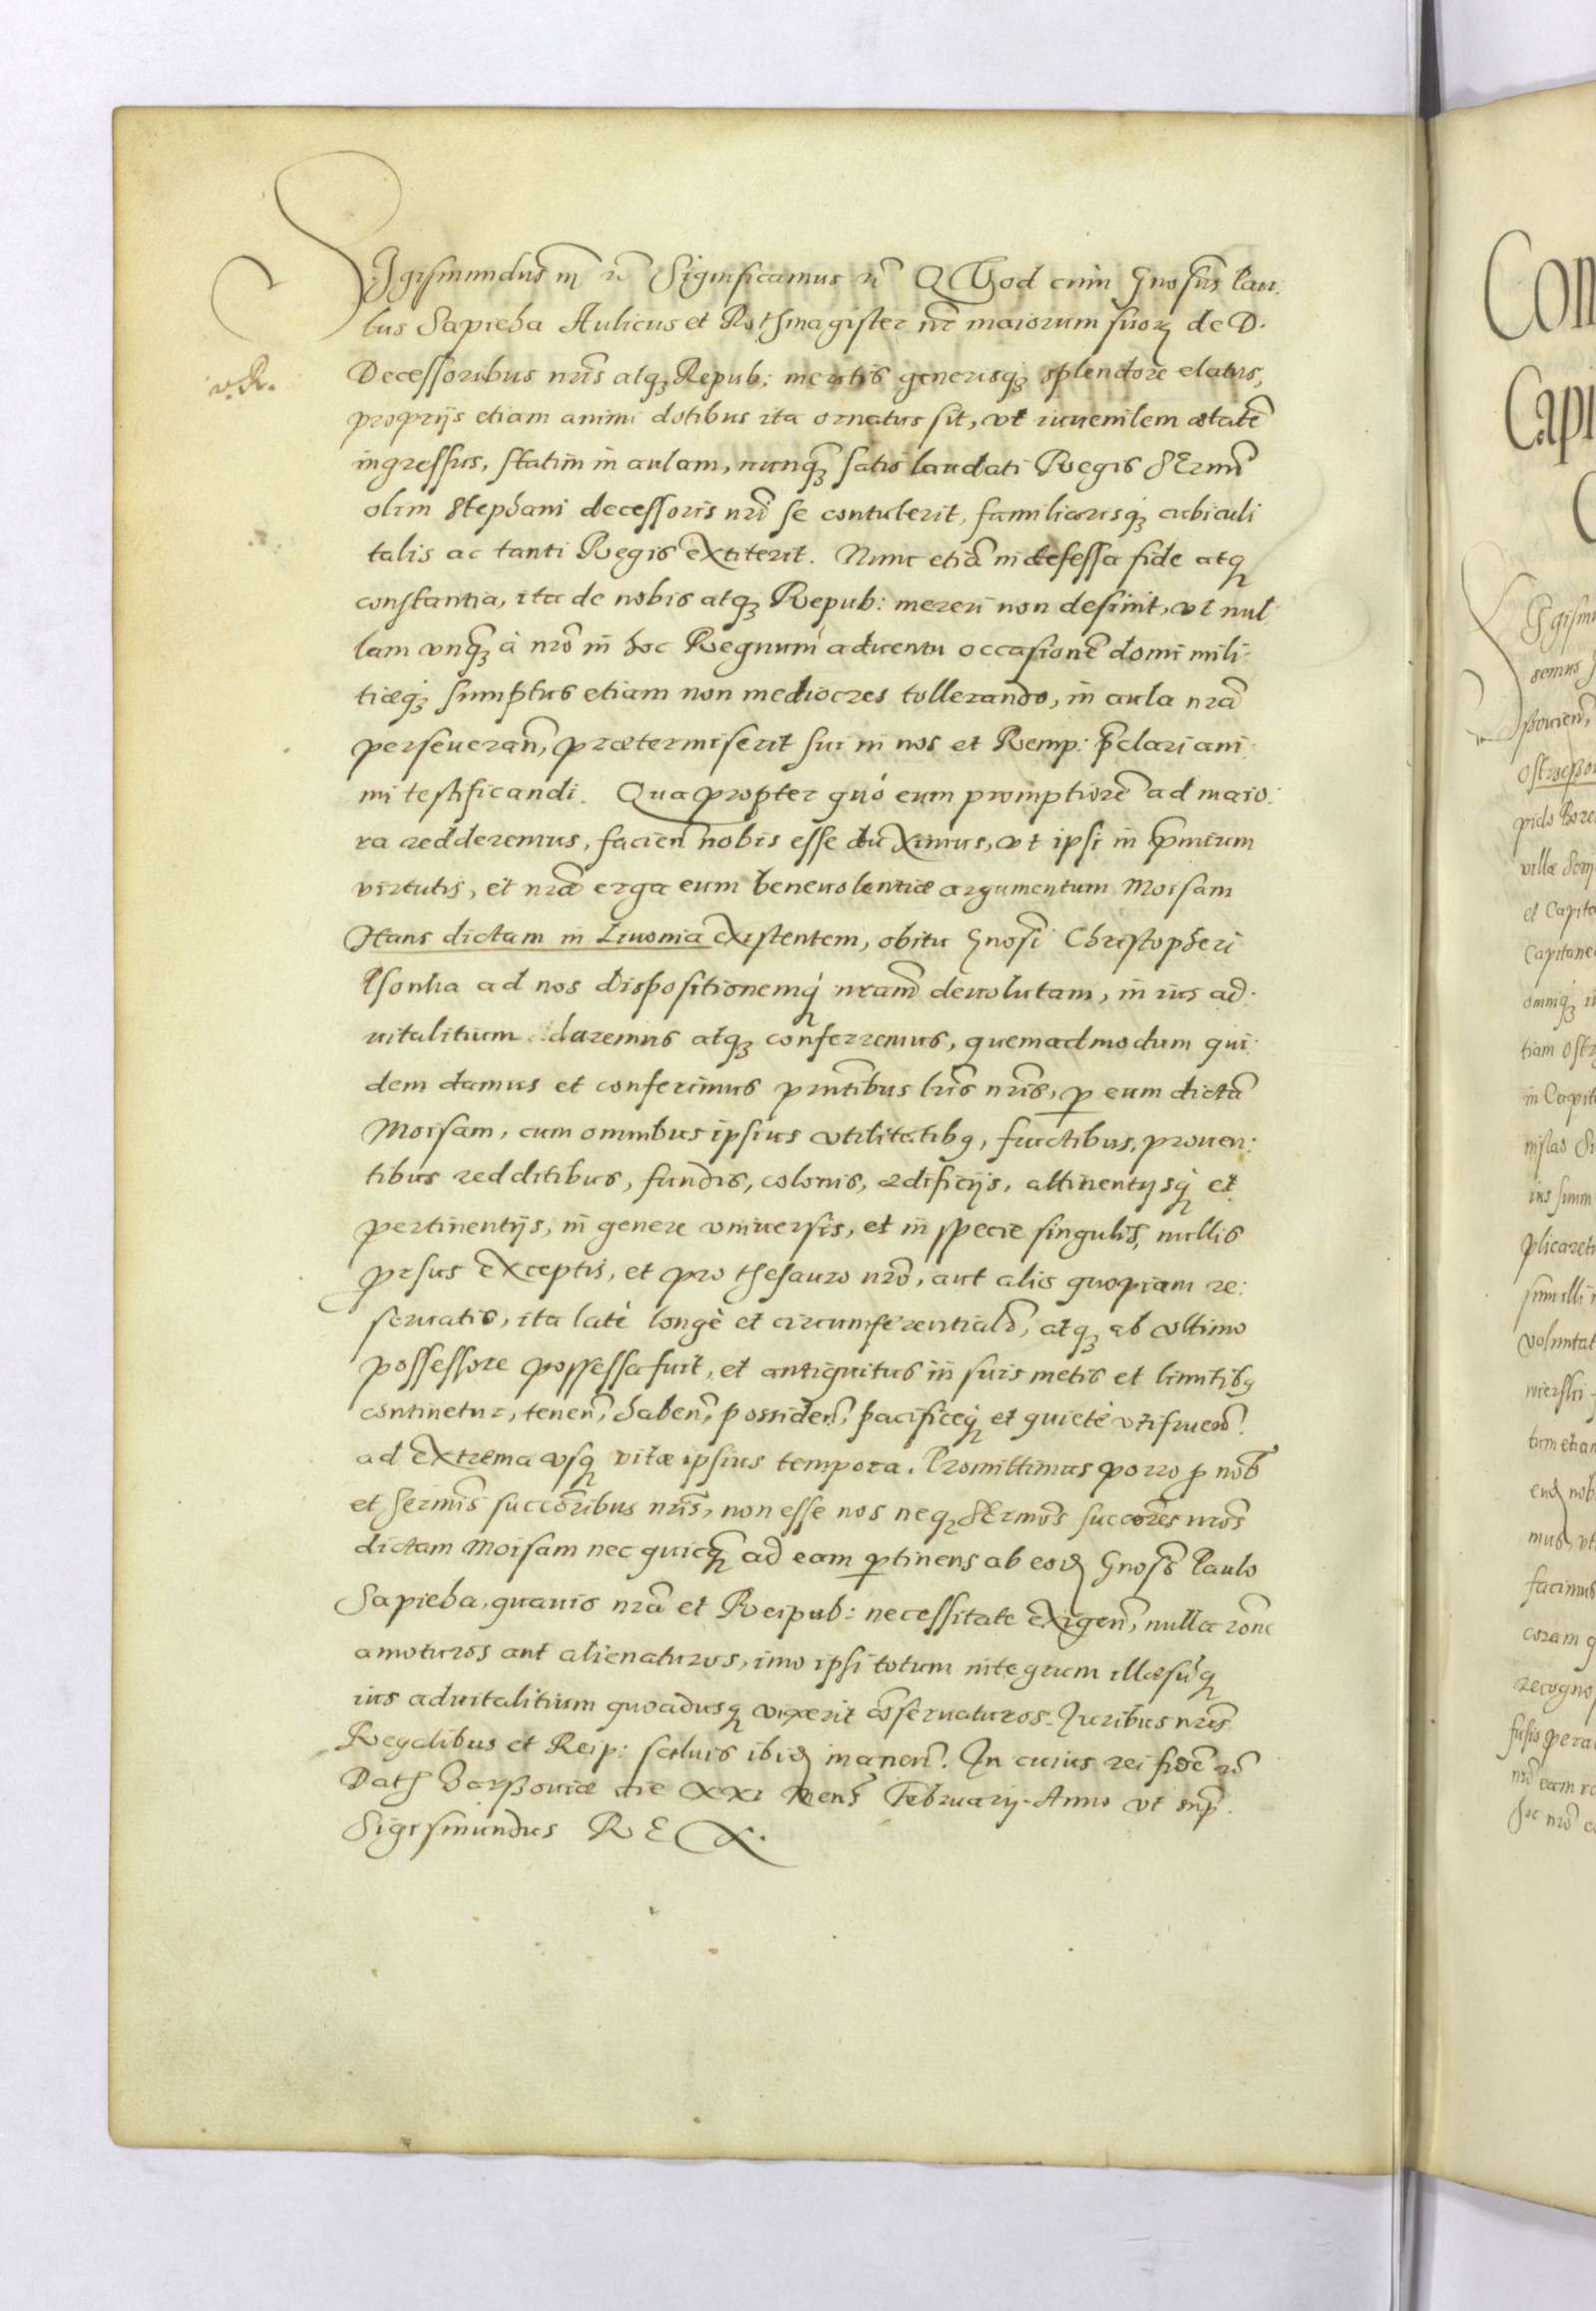 SIgismundus m̃ rc̃ Significamus rc̃ QVod cum Gnosus Pau:
lus Sapieha Aulicus et Rothmagister nr̃ maiorum suorꝫ de D.
v. R.
Decessoribus nrĩs atqꝫ Repub: meritis generisqꝫ splendore elatus,
proprijs etiam animi dotibus ita ornatus sit, vt iuuenilem ætatẽ
ingressus, statim in aulam, nunqꝫ satis laudati Regis SErmĩ
olim Stephani decessoris nrĩ se contulerit, familiarisqꝫ cubiculi
talis ac tanti Regis extiterit. Nunc etiã indefessa fide atqꝫ
constantia, ita de nobis atqꝫ Repub: mereri non desinit, vt nul
lam vnqꝫ à nrõ in hoc Regnum aduentu occasionẽ domi mili:
tiæqꝫ sumptus etiam non mediocres tollerando, in aula nrã
perseuerañ, prætermiserit sui in nos et Remp: p̃clari ani:
mi testificandi. Quapropter quó eum promptiorẽ ad maio:
ra redderemus, facieñ nobis esse duximus, vt ipsi in p̃mium
virtutis, et nræ erga eum beneuolentiæ argumentum Moisam
Hans dictam in Liuonia existentem, obitu Gnosi Christopheri
ad nos dispositionemqꝫ nram̃ deuolutam, in ius ad:
uitalitium daremus atqꝫ conferremus, quemadmodum qui:
dem damus et conferimus prñtibus lrĩs nrĩs, p eum dictã
Moisam, cum omnibus ipsius vtilitatibꝫ, fructibus, prouen:
tibus redditibus, fundis, colonis, ædificijs, attinentijsqꝫ et
pertinentijs, in genere vniuersis, et in specie singulis, nullis
prorsus exceptis, et pro thesauro nrõ, aut alis quopiam re:
seruatis, ita latè longè et circumferentialr̃, atqꝫ ab vltimo
possessore possessa fuit, et antiquitus in suis metis et limitibꝫ
continetur, teneñ, habeñ, possideñ, pacificeqꝫ et quietè vtifrueñ
ad extrema vsqꝫ vitæ ipsius tempora. Promittimus porro p nob̃
et Sermĩs succoribus nrĩs, non esse nos neqꝫ SErmõs succores nrõs
dictam Moisam nec quicqꝫ ad eam ptinens ab eod Gnoso Paulo
Sapieha, quauis nrã et Reipub: necessitate exigeñ, nulla rone
amoturos aut alienaturos, imo ipsi totum integrum illæsuqꝫ
ius aduitalitium quoadusqꝫ vixerit cõseruaturos. Iuribus nrĩs
Regalibus et Reip: saluis ibid maneñ. In cuius rei fidẽ rc̃
Dat Varssouiæ die XXI Mens̃ Februarij. Anno vt sup̃.
Sigismundus REX.